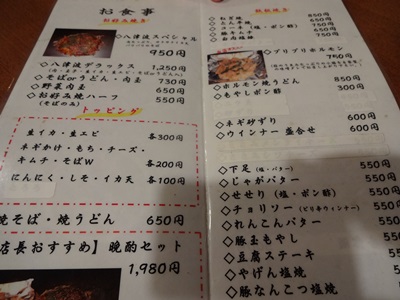 お食事
お好み焼き
◇八津波スペシャル
950円
◇八津波デラックス 1,250円
◇そばorうどん・肉玉 730円
◇野菜肉玉 650円
◇お好み焼ハーフ 550円
(そばのみ)
トッピング
生イカ・生エビ 各300円
ネギかけ・もち・チーズ・
キムチ・そばW 各200円
にんにく・しそ・イカ天 各100円
焼そば・焼うどん 650円
店長おすすめ】晩酌セット
1,980円
鉄板焼き
◇プリプリホルモン
750円
◇ホルモン焼うどん 850円
◇もやしポン酢
◇ネギ砂ずり 600円
◇ウインナー盛合せ 600円
◇下足(塩・バター) 550円
◇じゃがバター 550円
◇せせり(塩・ポン酢) 550円
◇チョリソー(ピリ辛ウィンナー) 550円
◇れんこんバター 550円
◇豚玉もやし 550円
◇豆腐ステーキ 550円
◇やげん塩焼 550円
◇豚なんこつ塩焼 550円